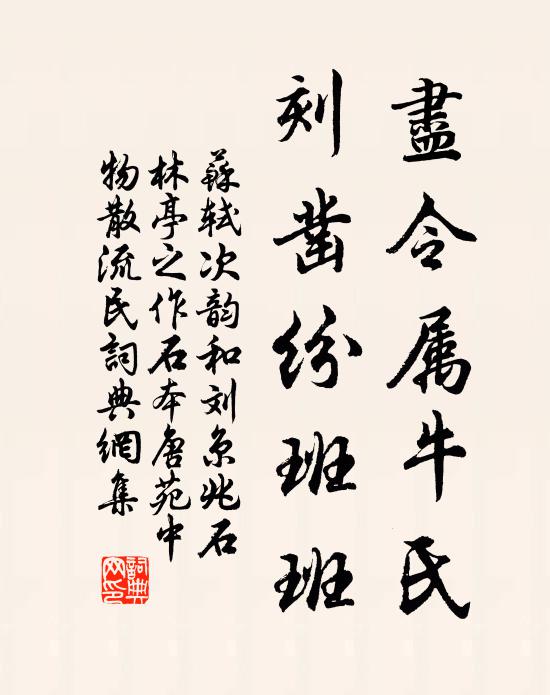 盡令属牛氏
刻凿紛班班
蘇轼次韵和刘京兆石
林亭之作石本唐苑中
物散流民詞典網集
詞典网印